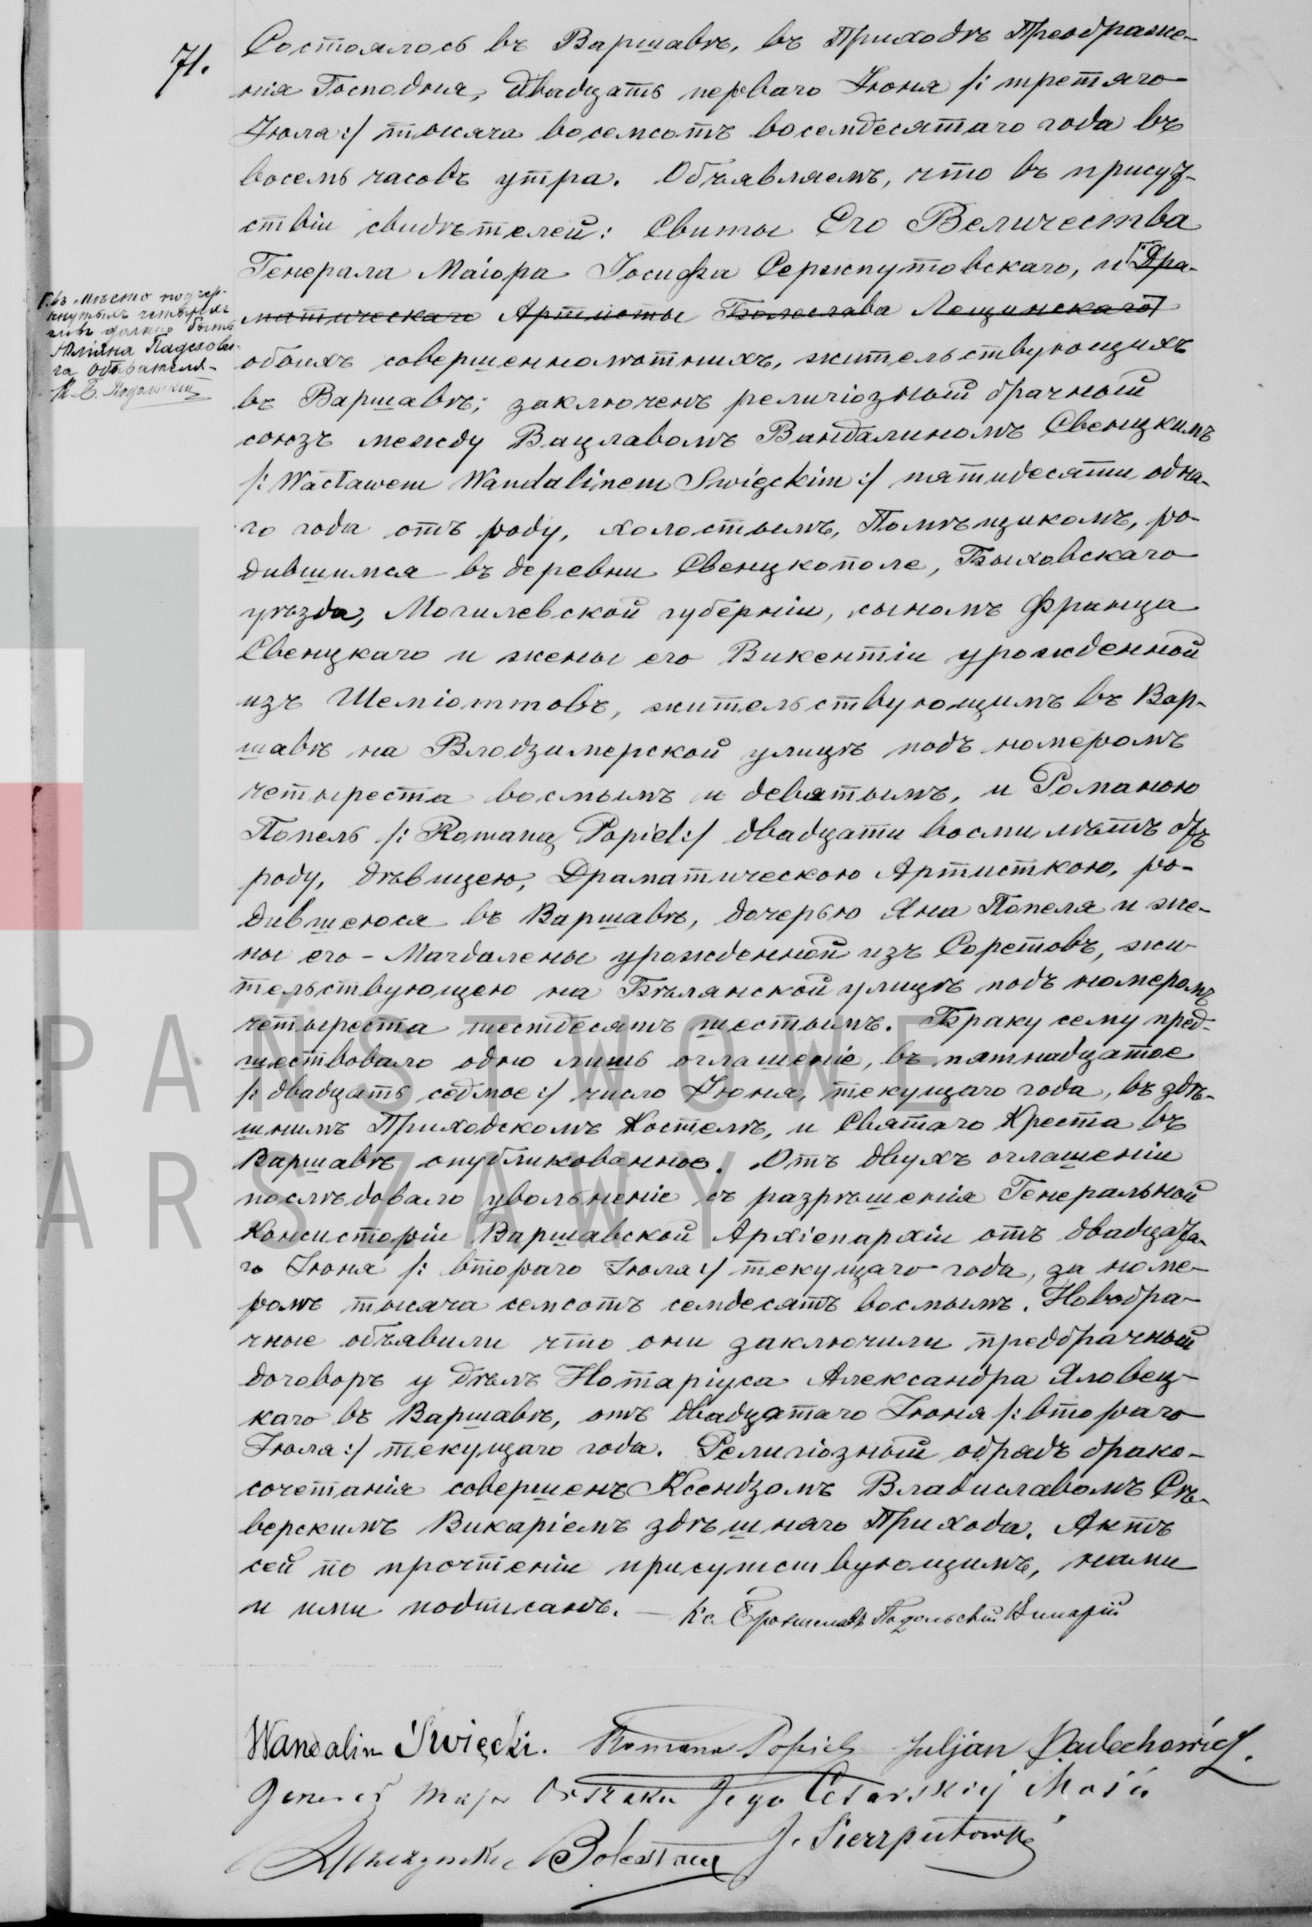 71.
Состоялось въ Варшавѣ, въ Приходѣ Преображе-
нія Господня, двадцать перваго Іюня /: третяго
Іюля :/ тысяча восемсотъ восемдесятаго года въ
восемь часовъ утра. Объявляемъ, что въ присут-
ствіи свидѣтелей: Свиты Его Величества
Генерала Маіора Іосифа Сержпутовскаго, и Дра-
матическаго Артисты Болеслава Лещинскаго
обоихъ совершеннолѣтнихъ, жительствующихъ
въ Варшавѣ; заключенъ религіозный брачный
союзъ между Вацлавомъ Вандалиномъ Свенцкимъ
/: Wacławem Wandalinem Swięckim :/ пятидесяти одна-
го года отъ роду, холостымъ, Помѣщикомъ, ро-
дившимся въ деревни Свенцкополе, Быховскаго
уѣзда, Могилевской губерніи, сыномъ Франца
Свенцкаго и жены его Викентіи урожденной
изъ Шеміоттовъ, жительствующимъ въ Вар-
шавѣ на Влодзимерской улицѣ подъ номеромъ
четыреста восмымъ и девятымъ, и Романою
Попель /: Romaną Popiel :/ двадцати восми лѣтъ отъ
роду, дѣвицею, Драматическою Артисткою, ро-
дившеюся въ Варшавѣ, дочерью Яна Попеля и же-
ны его - Магдалены урожденной изъ Сорстовъ, жи-
тельствующею на Бѣлянской улицѣ подъ номеромъ
четыреста шестдесятъ шестымъ. Браку сему пред-
шествовало одно лишь оглашеніе, въ пятнадцатое
/: двадцать седмое :/ число Іюня, текущаго года, въ здѣ-
шнимъ Приходскомъ Костелѣ, и Святаго Креста въ
Варшавѣ опубликованное. Отъ двухъ оглашеніи
послѣдовало увольненіе съ разрѣшенія Генеральной
Консисторіи Варшавской Архіепархіи отъ двадцата-
го Іюня /: втораго Іюля :/ текущаго года, за номе-
ромъ тысяча семсотъ семдесятъ восмымъ. Новобра-
чные объявили что они заключили предбрачный
договоръ у дѣлъ Нотаріуса Александра Яловец-
каго въ Варшавѣ, отъ двадцатаго Іюня /: втораго
Іюля :/ текущаго года. Религіозный обрядъ брако-
сочетанія совершенъ Ксендзомъ Владиславомъ Сѣ-
верскимъ Викаріемъ здѣшняго Прихода. Актъ
сей по прочтеніи присутствующимъ, нами
и ими подписанъ. — Кс. Брониславъ Подольскій Викарій
Въ мѣсто подчер-
кнутыхъ четырехъ
словъ должно быть
Юліяна Падехови-
ча Обывателя -
К. Б. Подольскій
Wandalin Swięcki. Romana Popiel Juljan Padechowicz.
Generał Major Orszaku Jego Cesarskiej Mości
J. Sierzputowski
Leszczyński Bolesław
PAŃSTWOWE
ARSZAWY